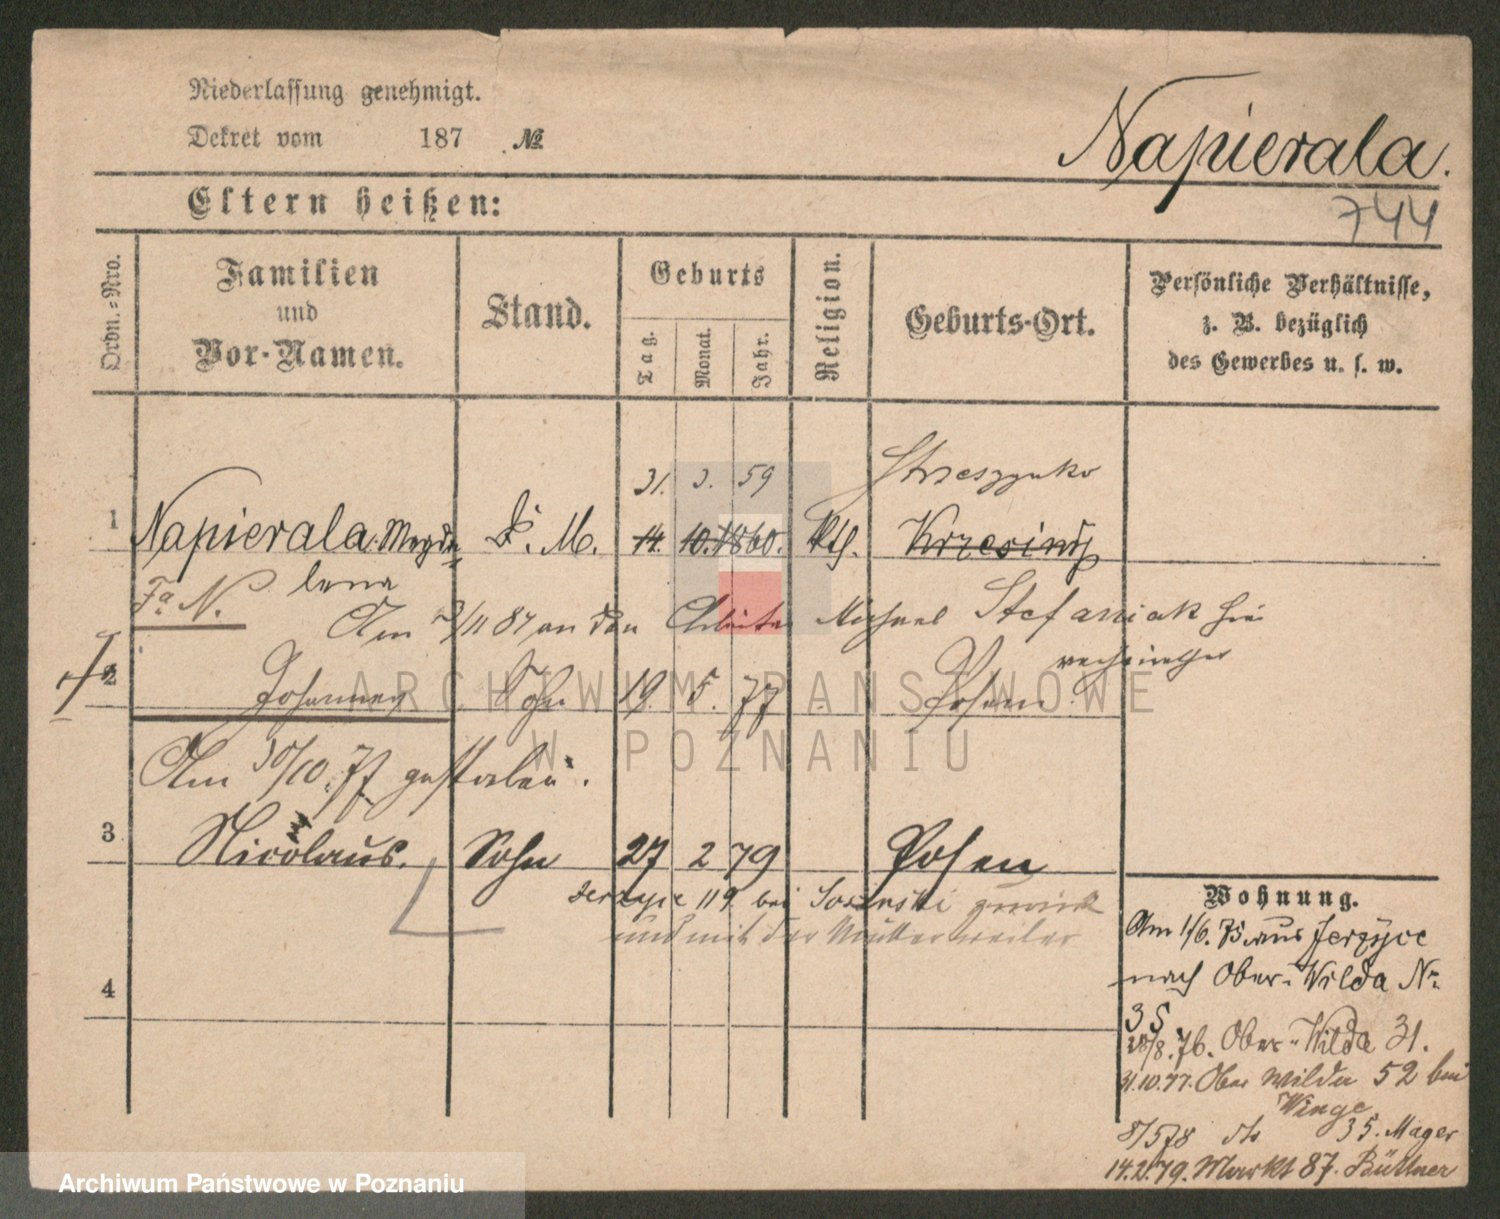 Niederlassung genehmigt.
Dekret vom 187 №
Napierala.
744
Eltern heißen:
Ordn.-Nro.
Familien
und
Vor-Namen.
Stand.
Geburts
Tag.
Monat.
Jahr.
Religion.
Geburts-Ort.
Persönliche Verhältnisse,
z. B. bezüglich
des Gewerbes u. s. w.
31. 3. 59
1 Napierala Magda D. M. 14. 10. 1860. Kth. Krzesiny
lena
Fa N.
Am 3/11 87 an den Arbeiter Michael Stefaniak hier
verheirathet
2 Johannes Sohn 19. 5. 77 Posen
Am 30/10. 77 gestorben.
3 Nicolaus. Sohn 27 2 79 Posen
Jerzyce 119 bei Sosinski zurück
und mit der Mutter weiter
4
Wohnung.
Am 1/6. 75 aus Jerzyce
nach Ober-Wilda Nr.
35
28/8. 76. Ober-Wilda 31.
31.10.77. Ober Wilda 52 bei
Winge
8/5 78 dto 35. Mager
14.2.79. Markt 87. Büttner
ARCHIWUM PAŃSTWOWE
W POZNANIU
Archiwum Państwowe w Poznaniu